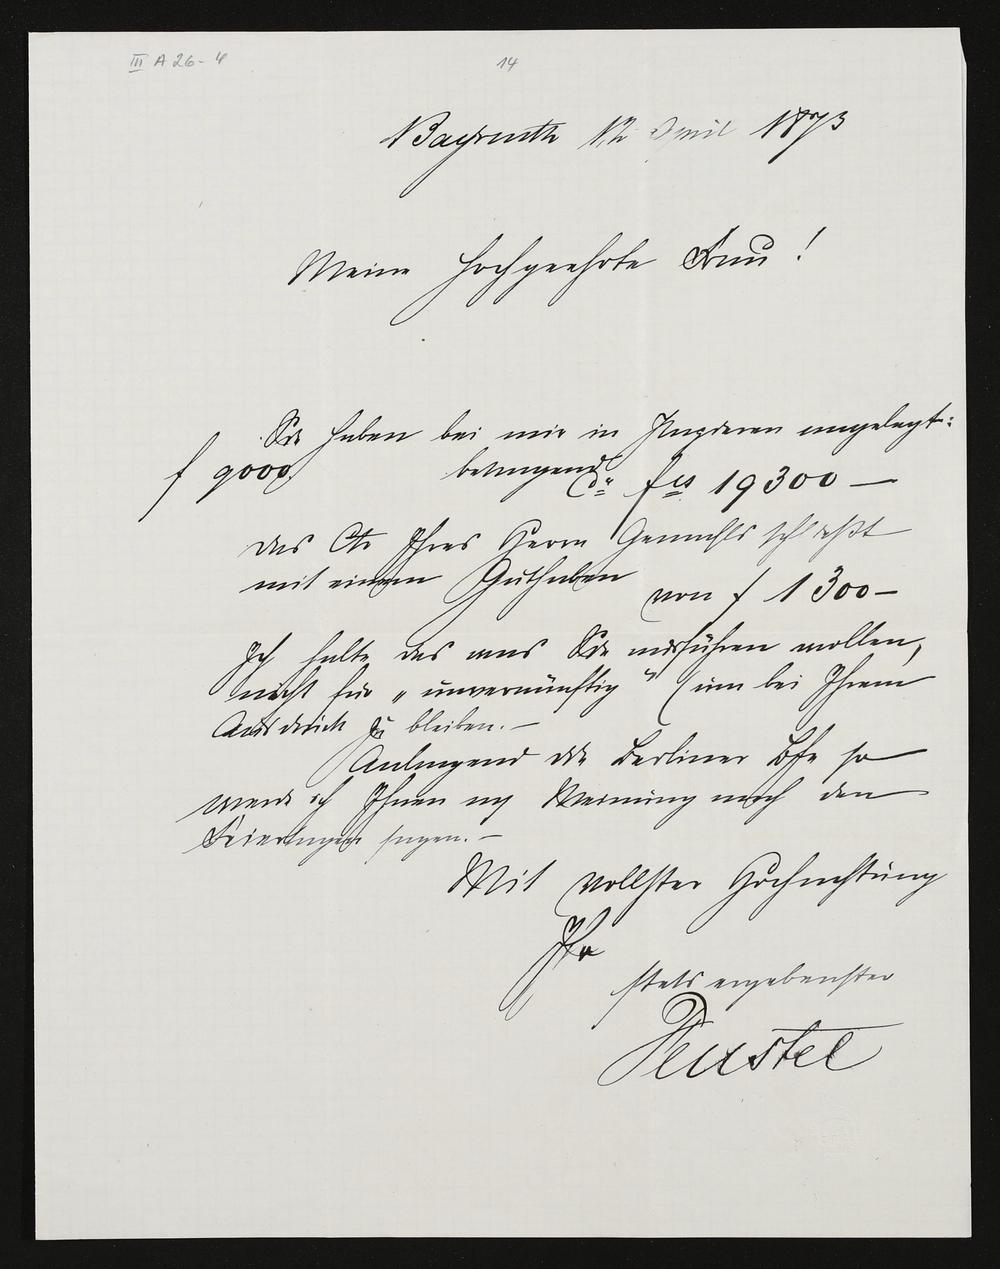 III A 26-4
14
Bayreuth 12 April 1873
Meine hochgeehrte Frau!
Sie haben bei mir in Papieren angelegt:
f 9000. betragend do fcs 19300 —
das Cto Ihres Herrn Gemahls schließt
mit einem Guthaben von f 1300 —
Ich halte das was Sie ausführen wollen,
nicht für „unvernünftig" (um bei Ihrem
Ausdruck zu bleiben. —
Anlangend die Berliner so
werde ich Ihnen Meinung nach den
Feiertagen sagen. —
Mit vollster Hochachtung
Ihr
stets ergebenster
Feustel